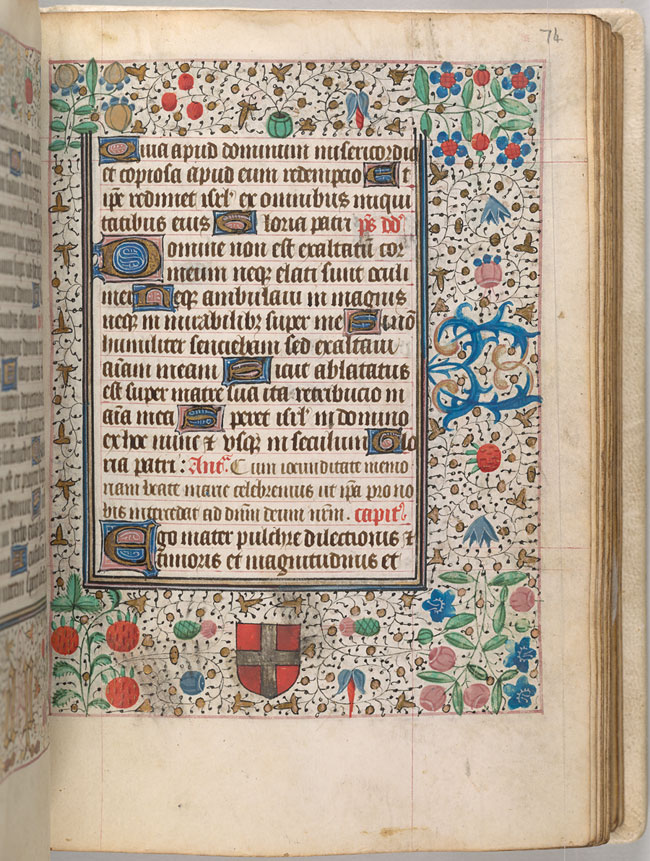 74
Quia apud dominum misericordia
et copiosa apud eum redempcio Et
ip̄e redimet isrl̄ ex omnibus iniqui
tatibus eius Gloria patri p̄s dd̄
Domine non est exaltatū cor
meum neqꝫ elati sunt oculi
mei Neqꝫ ambulavi in magnis
neqꝫ in mirabilibꝫ super me Si nō
humiliter senciebam sed exaltavi
aīam meam Sicut ablatatus
est super matre sua ita retribucio in
aīa mea Speret isrl̄ in domino
ex hoc nunc et vsqꝫ in seculum Glo
ria patri : Ant̄ Cum iocunditate memo
riam beate marie celebremus ut ip̄a pro no
bis intercedat ad dn̄m deum nr̄m. capitl̄
Ego mater pulchre dilectionis et
timoris et magnitudinis et